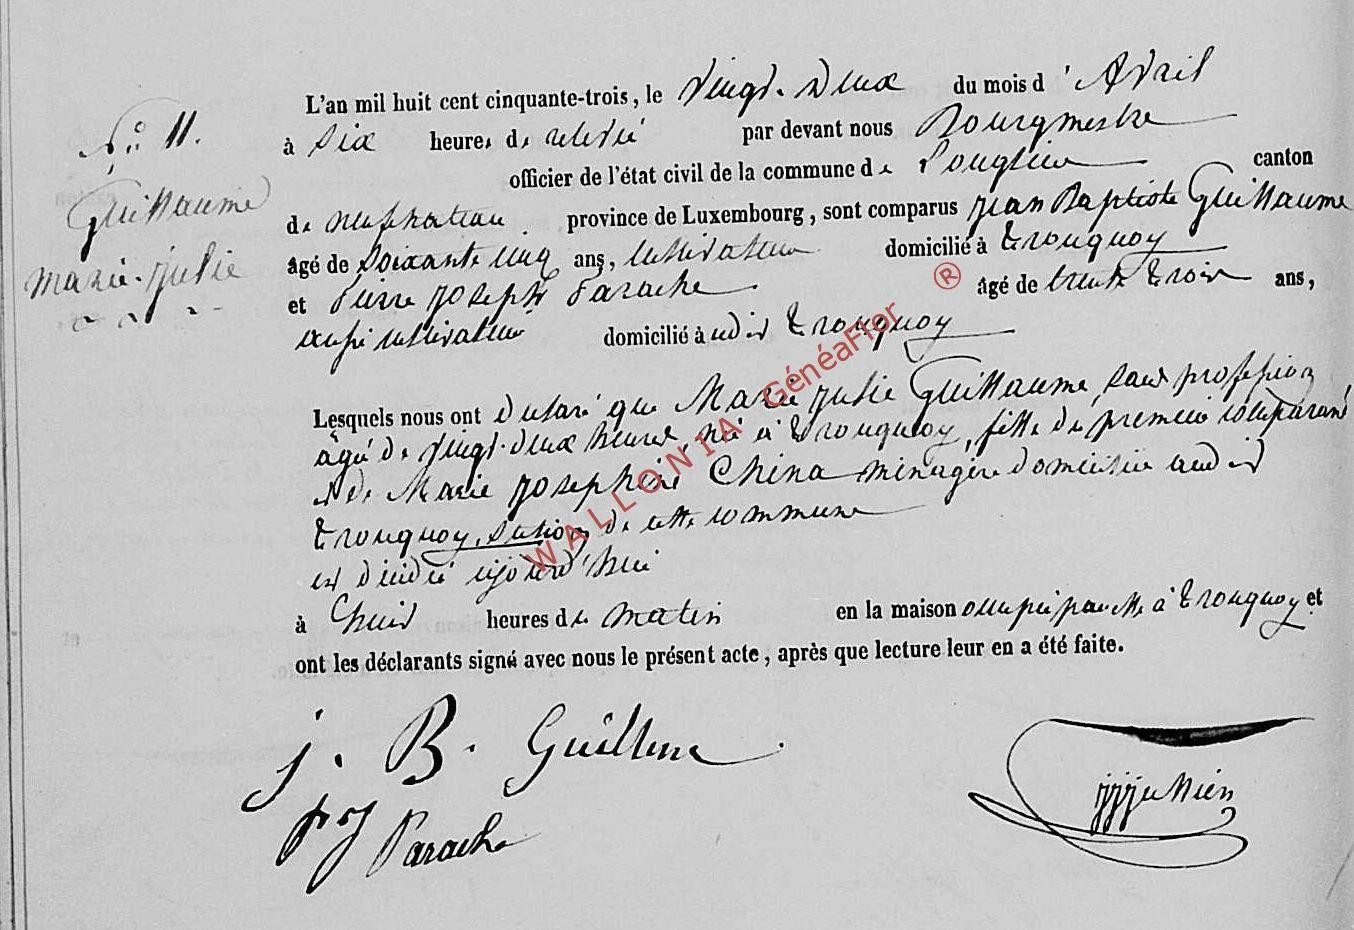 L'an mil huit cent cinquante-trois, le vingt-deux du mois d'Avril
N° 11.
à six heures de relevé par devant nous Bourgmestre
officier de l'état civil de la commune de Longlier canton
Guillaume
de neufchateau. province de Luxembourg, sont comparus jean Baptiste Guillaume
Marie-julie
âgé de soixante cinq ans, cultivateur domicilié à tronquoy
et Pierre joseph Parache âgé de trente trois ans,
aussi cultivateur domicilié à udit tronquoy
Lesquels nous ont déclaré que Marie julie Guillaume, sans profession
agée de vingt-deux heures, née à tronquoy, fille du premier comparant
et de Marie josephine China ménagère domiciliée audit
tronquoy, section de cette commune
est décédée ajourd'hui
à huit heures du matin en la maison occupée par elle à tronquoy et
ont les déclarants signé avec nous le présent acte, après que lecture leur en a été faite.
j. B. Guillme
pj Parache
WALLONIA GénéaFror ®